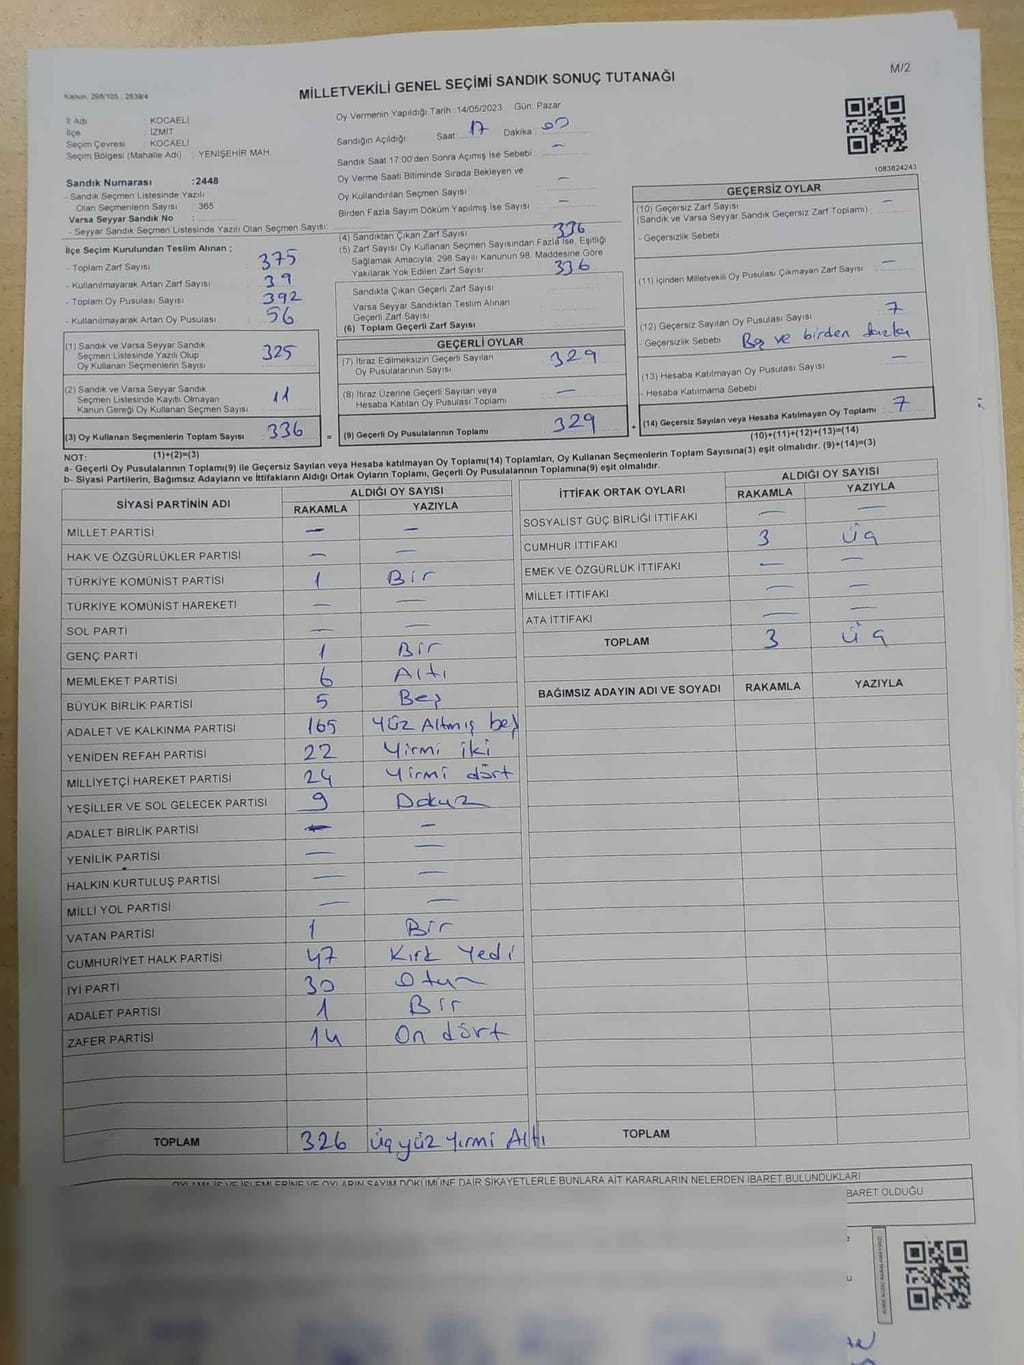 Kanun: 298/105 , 2839/4
MİLLETVEKİLİ GENEL SEÇİMİ SANDIK SONUÇ TUTANAĞI
M/2
İl Adı KOCAELİ
İlçe : İZMİT
Seçim Çevresi : KOCAELİ
Seçim Bölgesi (Mahalle Adı) : YENİŞEHİR MAH.
Sandık Numarası :2448
- Sandık Seçmen Listesinde Yazılı
Olan Seçmenlerin Sayısı : 365
Varsa Seyyar Sandık No :
- Seyyar Sandık Seçmen Listesinde Yazılı Olan Seçmen Sayısı:
Oy Vermenin Yapıldığı Tarih :14/05/2023 Gün: Pazar
Sandığın Açıldığı Saat 17 Dakika 00
Sandık Saat 17:00'den Sonra Açımış İse Sebebi : –
Oy Verme Saati Bitiminde Sırada Bekleyen ve
Oy Kullandırılan Seçmen Sayısı : –
Birden Fazla Sayım Döküm Yapılmış İse Sayısı : –
1083824243
İlçe Seçim Kurulundan Teslim Alınan ;
- Toplam Zarf Sayısı 375
- Kullanılmayarak Artan Zarf Sayısı 39
- Toplam Oy Pusulası Sayısı 392
- Kullanılmayarak Artan Oy Pusulası 56
(1) Sandık ve Varsa Seyyar Sandık
Seçmen Listesinde Yazılı Olup
Oy Kullanan Seçmenlerin Sayısı 325
(2) Sandık ve Varsa Seyyar Sandık
Seçmen Listesinde Kayıtlı Olmayan
Kanun Gereği Oy Kullanan Seçmen Sayısı 11
(3) Oy Kullanan Seçmenlerin Toplam Sayısı 336 =
(4) Sandıktan Çıkan Zarf Sayısı 336
(5) Zarf Sayısı Oy Kullanan Seçmen Sayısından Fazla İse, Eşitliği
Sağlamak Amacıyla; 298 Sayılı Kanunun 98. Maddesine Göre
Yakılarak Yok Edilen Zarf Sayısı 336
Sandıkta Çıkan Geçerli Zarf Sayısı
Varsa Seyyar Sandıktan Teslim Alınan
Geçerli Zarf Sayısı
(6) Toplam Geçerli Zarf Sayısı
GEÇERLİ OYLAR
(7) İtiraz Edilmeksizin Geçerli Sayılan
Oy Pusulalarının Sayısı 329
(8) İtiraz Üzerine Geçerli Sayılan veya
Hesaba Katılan Oy Pusulası Toplamı –
(9) Geçerli Oy Pusulalarının Toplamı 329 +
GEÇERSİZ OYLAR
(10) Geçersiz Zarf Sayısı –
(Sandık ve Varsa Seyyar Sandık Geçersiz Zarf Toplamı) :
- Geçersizlik Sebebi
(11) İçinden Milletvekili Oy Pusulası Çıkmayan Zarf Sayısı –
(12) Geçersiz Sayılan Oy Pusulası Sayısı 7
- Geçersizlik Sebebi Boş ve birden fazla
(13) Hesaba Katılmayan Oy Pusulası Sayısı –
- Hesaba Katılmama Sebebi
(14) Geçersiz Sayılan veya Hesaba Katılmayan Oy Toplamı 7
NOT: (1)+(2)=(3) (10)+(11)+(12)+(13)=(14)
a- Geçerli Oy Pusulalarının Toplamı(9) ile Geçersiz Sayılan veya Hesaba katılmayan Oy Toplamı(14) Toplamları, Oy Kullanan Seçmenlerin Toplam Sayısına(3) eşit olmalıdır. (9)+(14)=(3)
b- Siyasi Partilerin, Bağımsız Adayların ve İttifakların Aldığı Ortak Oyların Toplamı, Geçerli Oy Pusulalarının Toplamına(9) eşit olmalıdır.
SİYASİ PARTİNİN ADI ALDIĞI OY SAYISI
RAKAMLA YAZIYLA
MİLLET PARTİSİ – –
HAK VE ÖZGÜRLÜKLER PARTİSİ – –
TÜRKİYE KOMÜNİST PARTİSİ 1 Bir
TÜRKİYE KOMÜNİST HAREKETİ – –
SOL PARTİ – –
GENÇ PARTİ 1 Bir
MEMLEKET PARTİSİ 6 Altı
BÜYÜK BİRLİK PARTİSİ 5 Beş
ADALET VE KALKINMA PARTİSİ 165 Yüz Altmış beş
YENİDEN REFAH PARTİSİ 22 Yirmi iki
MİLLİYETÇİ HAREKET PARTİSİ 24 Yirmi dört
YEŞİLLER VE SOL GELECEK PARTİSİ 9 Dokuz
ADALET BİRLİK PARTİSİ – –
YENİLİK PARTİSİ – –
HALKIN KURTULUŞ PARTİSİ – –
MİLLİ YOL PARTİSİ – –
VATAN PARTİSİ 1 Bir
CUMHURİYET HALK PARTİSİ 47 Kırk Yedi
İYİ PARTİ 30 Otuz
ADALET PARTİSİ 1 Bir
ZAFER PARTİSİ 14 On dört
TOPLAM 326 Üçyüz Yırmi Altı
İTTİFAK ORTAK OYLARI ALDIĞI OY SAYISI
RAKAMLA YAZIYLA
SOSYALİST GÜÇ BİRLİĞİ İTTİFAKI – –
CUMHUR İTTİFAKI 3 üç
EMEK VE ÖZGÜRLÜK İTTİFAKI – –
MİLLET İTTİFAKI – –
ATA İTTİFAKI – –
TOPLAM 3 üç
BAĞIMSIZ ADAYIN ADI VE SOYADI RAKAMLA YAZIYLA
TOPLAM
OYLAMA İŞ VE İŞLEMLERİNE VE OYLARIN SAYIM DÖKÜMÜNE DAİR ŞİKAYETLERLE BUNLARA AİT KARARLARIN NELERDEN İBARET BULUNDUKLARI
BARET OLDUĞU